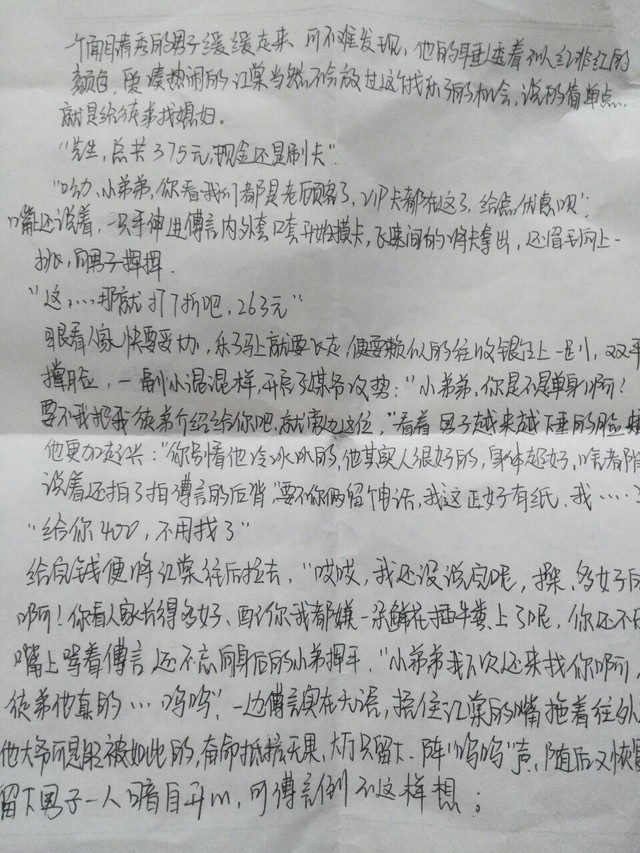 一个面目清秀的男子缓缓走来、可不难发现，他的耳垂透着似红非红的
颜色，爱凑热闹的江棠当然不会放过这个找乐子的机会，说的简单点
就是给徒弟找媳妇。
"先生，总共375元，现金还是刷卡"
"哟，小弟弟，你看我们都是老顾客了，VIP卡都在这了，给点优惠呗"；
嘴上还说着，一只手伸进傅言内外套口套开始摸卡，飞速间的将卡拿出，还眉毛向上一
挑，向男子挥挥．
"这……那就打7折吧，263元"
眼看人家快要妥协，乐子马上就要飞走，便耍赖似的往收银台上一趴，双手
撑脸，一副小混混样，开启了媒婆攻势："小弟弟，你是不是单身啊！
要不我把我徒弟介绍给你吧，就旁边这位，"看着男子越来越下垂的脸
他更加起兴："你别看他冷冰冰的，他其实人很好的，身体超好，啥都
说着还拍了拍傅言的后背，"要不你俩留个电话，我这正好有纸，我……
"给你400，不用找了"
给完钱便将江棠往后拉去，"哎哎，我还没说完呢，操、多好
啊！你看人家长得多好、配你我都嫌一朵鲜花插牛粪上了呢，你还不
嘴上骂着傅言还不忘向身后的小弟挥手．"小弟弟我下次还来找你啊，
徒弟他真的…呜呜"，一边傅言实在无语，捂住江棠的嘴拖着往外
他大爷可是被如此的，奋命抵抗无果，大厅只留下一阵"呜呜"声，随后又恢
留下男子一人暗自开心，可傅言倒不这样想；